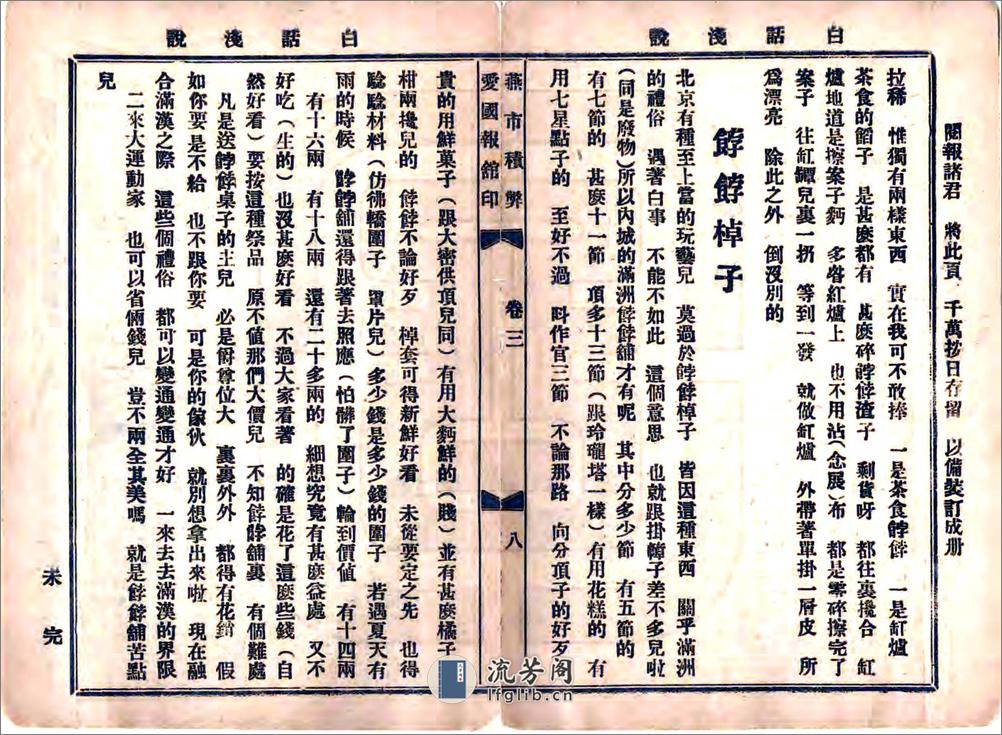 白話淺說
閱報諸君 將此頁 千萬按日存留 以備裝訂成册
拉稀 惟獨有兩樣東西 實在我可不敢捧 一是茶食餑餑 一是缸爐
茶食的餡子 是甚麽都有 甚麽碎餑餑渣子 剩貨呀 都往裏攙合 缸
爐地道是擦案子麪 多喒紅爐上 也不用沾(念展)布 都是零碎擦完了
案子 往缸罈兒裏一扔 等到一發 就做缸爐 外帶著單掛一層皮 所
爲漂亮 除此之外 倒沒別的
餑餑棹子
北京有種至上當的玩藝兒 莫過於餑餑棹子 皆因這種東西 關乎滿洲
的禮俗 遇著白事 不能不如此 這個意思 也就跟掛幛子差不多兒啦
(同是廢物)所以內城的滿洲餑餑舖才有呢 其中分多少節 有五節的
有七節的 甚麽十一節 頂多十三節(跟玲瓏塔一樣)有用花糕的 有
用七星點子的 至好不過 叫作官三節 不論那路 向分頂子的好歹
燕市積弊 卷三 八
愛國報館印
白話淺說
貴的用鮮菓子(跟大密供頂兒同)有用大麪鮮的(賤)並有甚麽橘子
柑兩攙兒的 餑餑不論好歹 棹套可得新鮮好看 未從要定之先 也得
騐騐材料(仿彿轎圍子 單片兒)多少錢是多少錢的圍子 若遇夏天有
雨的時候 餑餑舖還得跟著去照應(怕髒了圍子)輪到價値 有十四兩
有十六兩 有十八兩 還有二十多兩的 細想究竟有甚麽益處 又不
好吃(生的)也沒甚麽好看 不過大家看著 的確是花了這麽些錢(自
然好看)要按這種祭品 原不值那們大價兒 不知餑餑舖裏 有個難處
凡是送餑餑桌子的主兒 必是爵尊位大 裏裏外外 都得有花銷 假
如你要是不給 也不跟你要 可是你的傢伙 就別想拿出來啦 現在融
合滿漢之際 這些個禮俗 都可以變通變通才好 一來去去滿漢的界限
二來大運動家 也可以省倆錢兒 豈不兩全其美嗎 就是餑餑舖苦點
兒
未完
流芳阁
lfglib.cn